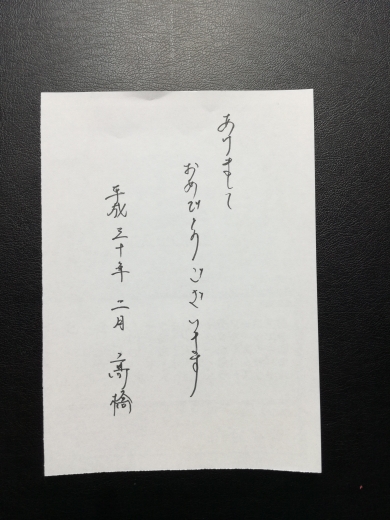 あけまして
おめでとうございます
平成三十年 二月 高橋